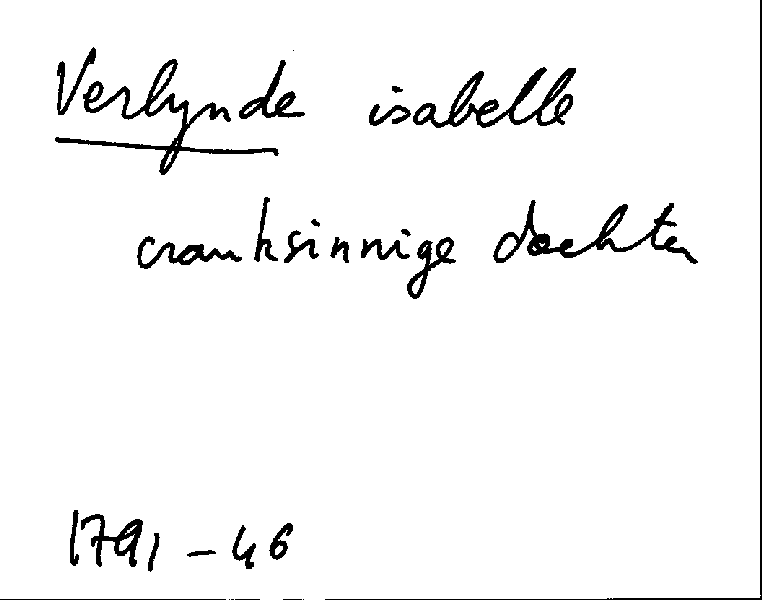 Verlynde isabelle
cranksinnige dochter
1791 - 46